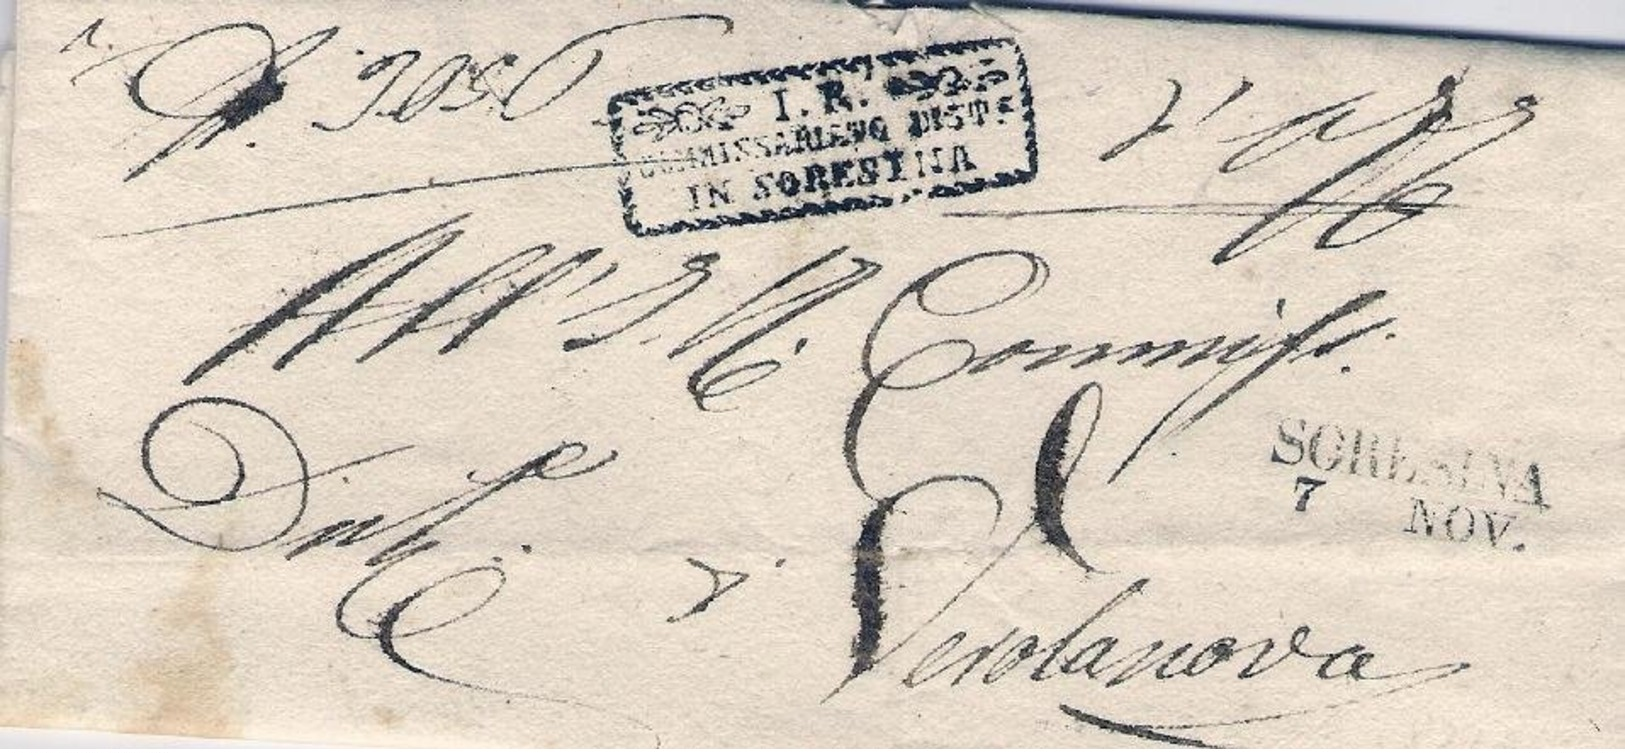 I. R.
COMMISSARIATO DIST.E
IN SORESINA
All' I. R. Commiss.
Dist.e di
Verolanova
SORESINA
7 NOV.